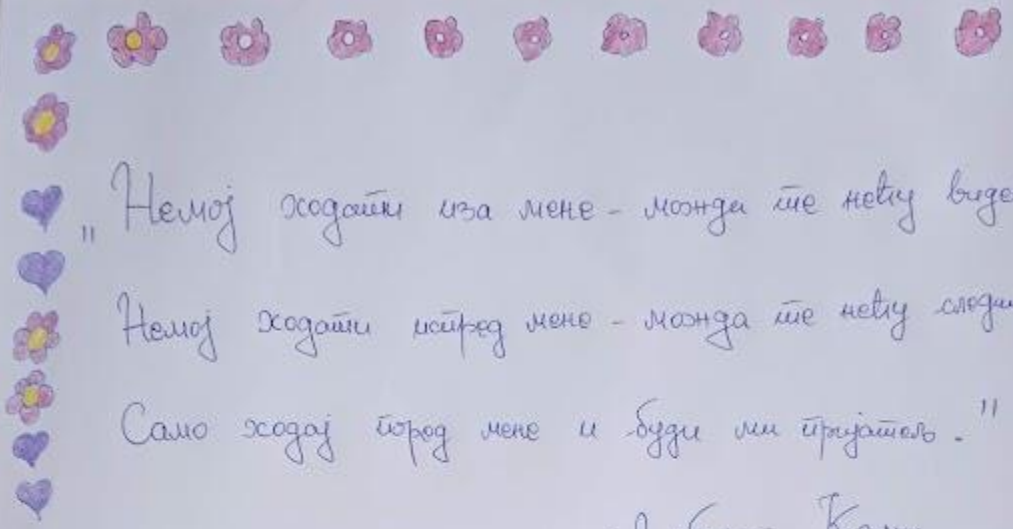 „Немој ходати иза мене - можда те нећу виде
Немој ходати испред мене - можда те нећу следи
Само ходај поред мене и буди ми пријатељ."